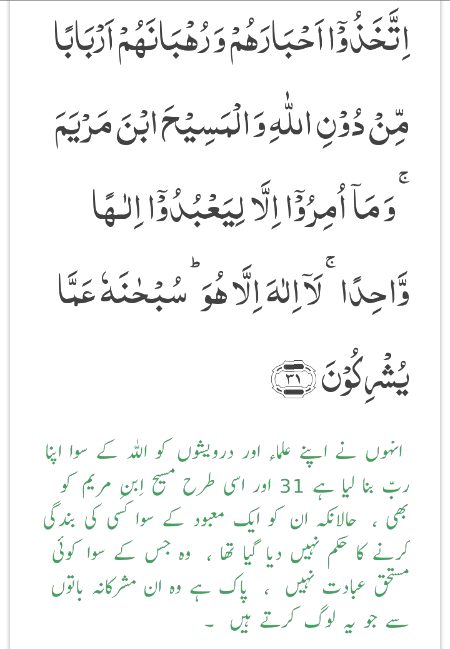 اِتَّخَذُوْۤا اَحْبَارَهُمْ وَرُهْبَانَهُمْ اَرْبَابًا
مِّنْ دُوْنِ اللّٰهِ وَالْمَسِيْحَ ابْنَ مَرْيَمَ
ۚ وَمَاۤ اُمِرُوْۤا اِلَّا لِيَعْبُدُوْۤا اِلٰـهًا
وَّاحِدًا ۚ لَاۤ اِلٰهَ اِلَّا هُوَ ؕ سُبْحٰنَهٗ عَمَّا
يُشْرِكُوْنَ ﴿۳۱﴾
انہوں نے اپنے علماء اور درویشوں کو اللہ کے سوا اپنا
ربّ بنا لیا ہے 31 اور اسی طرح مسیح اِبنِ مریم کو
بھی ، حالانکہ ان کو ایک معبود کے سوا کسی کی بندگی
کرنے کا حکم نہیں دیا گیا تھا ، وہ جس کے سوا کوئی
مستحق عبادت نہیں ، پاک ہے وہ ان مشرکانہ باتوں
سے جو یہ لوگ کرتے ہیں ۔